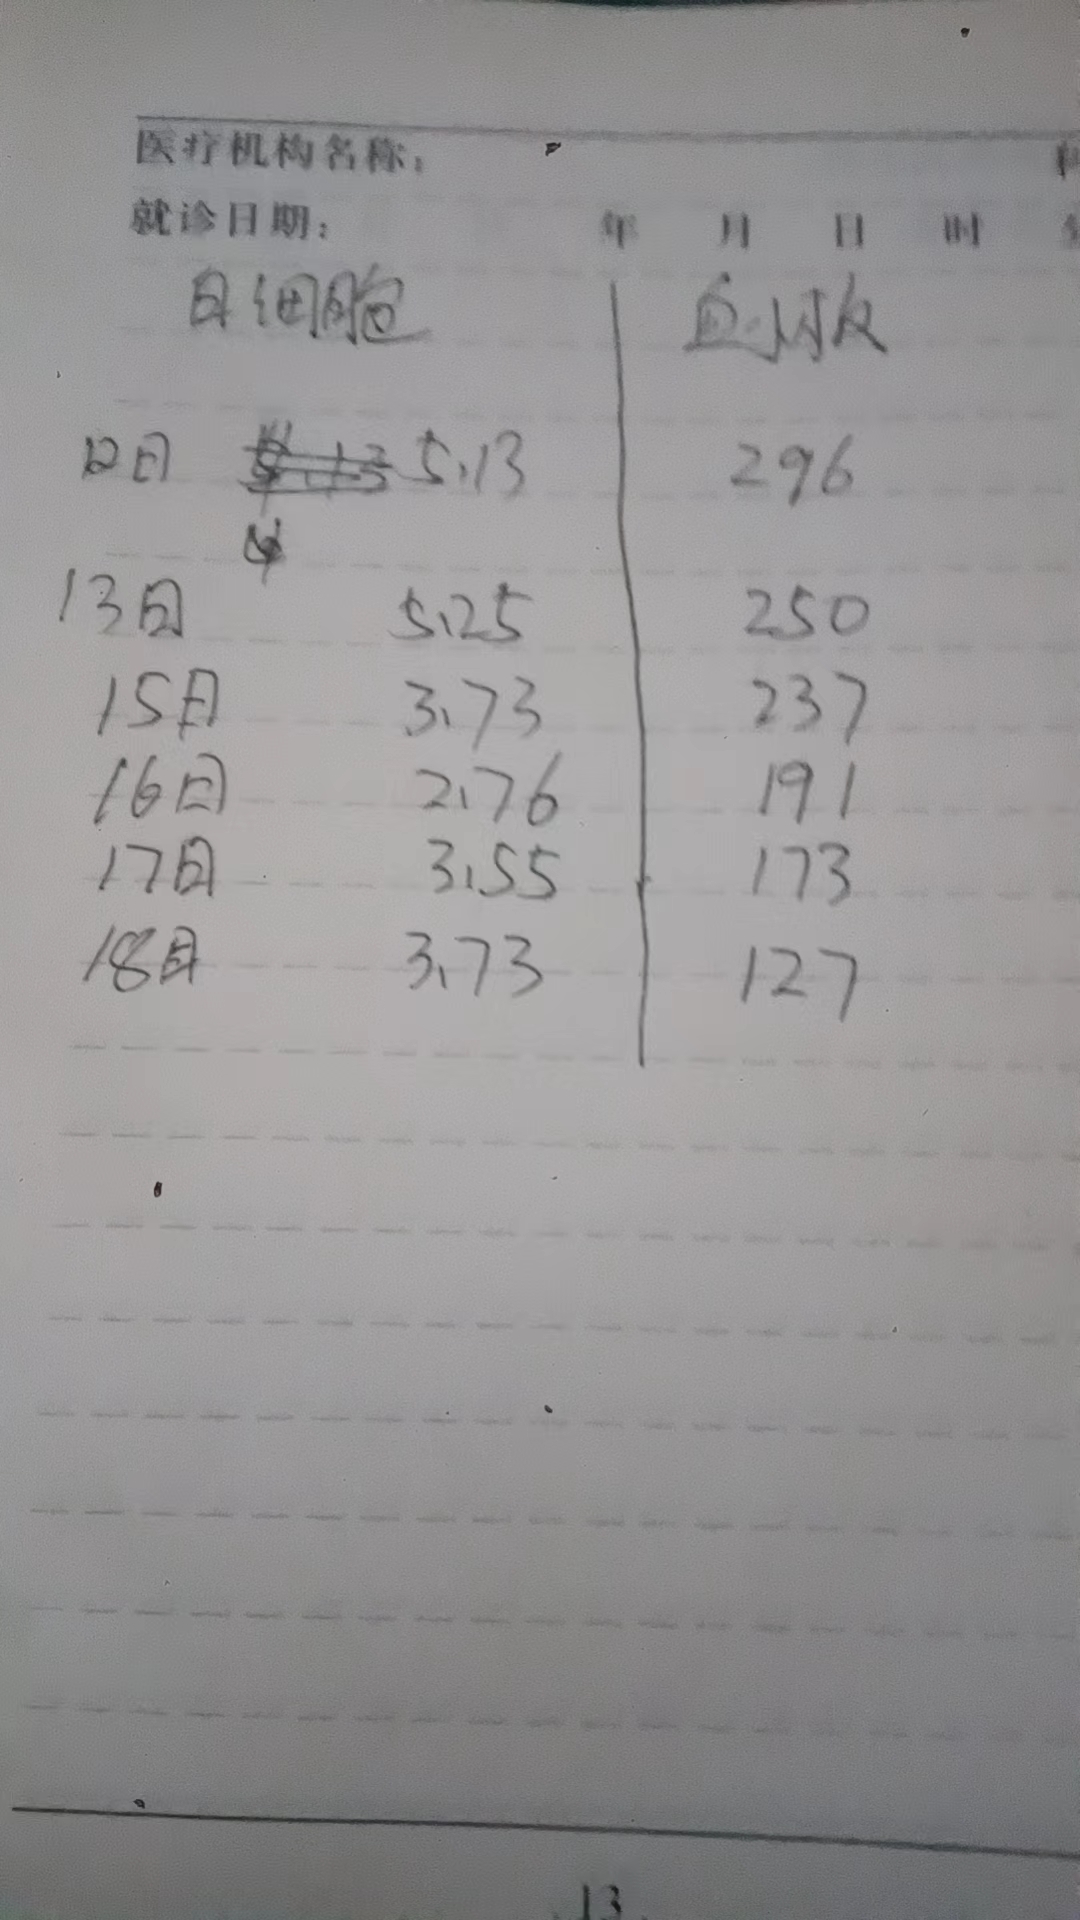 医疗机构名称：
就诊日期： 年 月 日 时
白细胞 血小板
12日 5.13 296
13日 5.25 250
15日 3.73 237
16日 2.76 191
17日 3.55 173
18日 3.73 127
13